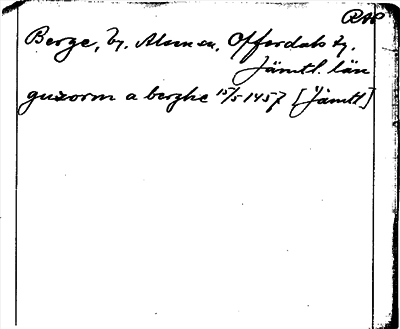 RAP
Berge, by. Alsen sn, Offerdals tg.
Jämtl. län
guzorm a berghe 15/5 1457 [Jämtl]